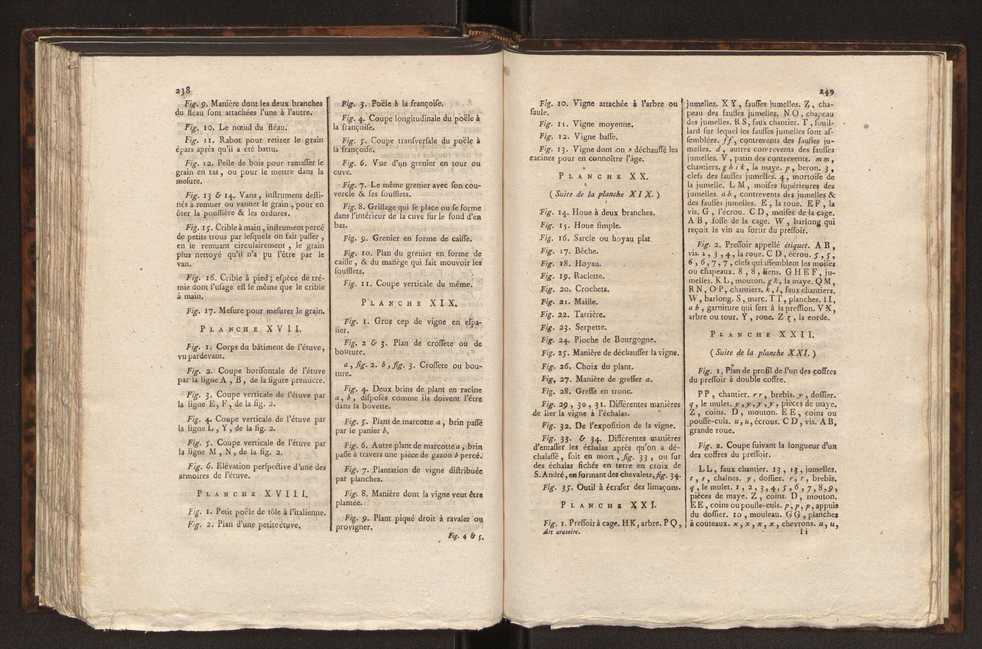 238
Fig. 9. Manière dont les deux branches
du fléau sont attachées l'une à l'autre.
Fig. 10. Le nœud du fléau.
Fig. 11. Rabot pour retirer le grain
épars après qu'il a été battu.
Fig. 12. Pelle de bois pour ramasser le
grain en tas, ou pour le mettre dans la
mesure.
Fig. 13 & 14. Vans, instrument desti-
nés à remuer ou vanner le grain, pour en
ôter la poussière & les ordures.
Fig. 15. Crible à main, instrument percé
de petits trous par lesquels on fait passer,
en le remuant circulairement, le grain
plus nettoyé qu'il n'a pu l'être par le
van.
Fig. 16. Crible à pied; espèce de tré-
mie dont l'usage est le même que le crible
à main.
Fig. 17. Mesure pour mesurer le grain.
PLANCHE XVII.
Fig. 1. Corps du bâtiment de l'étuve,
vu par devant.
Fig. 2. Coupe horisontale de l'étuve
par la ligne A, B, de la figure premiere.
Fig. 3. Coupe verticale de l'étuve par
la ligne E, F, de la fig. 2.
Fig. 4. Coupe verticale de l'étuve par
la ligne L, Y, de la fig. 2.
Fig. 5. Coupe verticale de l'étuve par
la ligne M, N, de la fig. 2.
Fig. 6. Elévation perspective d'une des
armoires de l'étuve.
PLANCHE XVIII.
Fig. 1. Petit poêle de tôle à l'italienne.
Fig. 2. Plan d'une petite étuve.
Fig. 3. Poêle à la françoise.
Fig. 4. Coupe longitudinale du poêle à
la françoise.
Fig. 5. Coupe transversale du poêle à
la françoise.
Fig. 6. Vue d'un grenier en tour ou
cuve.
Fig. 7. Le même grenier avec son cou-
vercle & ses soufflets.
Fig. 8. Grillage qui se place ou se forme
dans l'intérieur de la cuve sur le fond d'en
bas.
Fig. 9. Grenier en forme de caisse.
Fig. 10. Plan du grenier en forme de
caisse, & du manège qui fait mouvoir les
soufflets.
Fig. 11. Coupe verticale du même.
PLANCHE XIX.
Fig. 1. Gros cep de vigne en espa-
lier.
Fig. 2 & 3. Plan de crossete ou de
bouture.
a, fig. 2. b, fig. 3. Crossete ou bou-
ture.
Fig. 4. Deux brins de plant en racine
a, b, disposés comme ils doivent l'être
dans la bovette.
Fig. 5. Plant de marcotte a, brin passé
par le panier b.
Fig. 6. Autre plant de marcotte a, brin
passé à travers une pièce de gazon b percé.
Fig. 7. Plantation de vigne distribuée
par planches.
Fig. 8. Manière dont la vigne veut être
plantée.
Fig. 9. Plant piqué droit à ravaler ou
provigner.
Fig. 4 & 5.
249
Fig. 10. Vigne attachée à l'arbre ou
saule.
Fig. 11. Vigne moyenne.
Fig. 12. Vigne basse.
Fig. 13. Vigne dont on a déchaussé les
racines pour en connoître l'âge.
PLANCHE XX.
(Suite de la planche XIX.)
Fig. 14. Houe à deux branches.
Fig. 15. Houe simple.
Fig. 16. Sarcle ou hoyau plat.
Fig. 17. Bêche.
Fig. 18. Hoyau.
Fig. 19. Raclette.
Fig. 20. Crochets.
Fig. 21. Maille.
Fig. 22. Tarrière.
Fig. 23. Serpette.
Fig. 24. Pioche de Bourgogne.
Fig. 25. Manière de déchausser la vigne.
Fig. 26. Choix du plant.
Fig. 27. Manière de greffer a.
Fig. 28. Greffe en tronc.
Fig. 29, 30, 31. Différentes manières
de lier la vigne à l'échalas.
Fig. 32. De l'exposition de la vigne.
Fig. 33. & 34. Différentes manières
d'entasser les échalas après qu'on a dé-
chalassé, soit en mort, fig. 33, ou sur
des échalas fichés en terre en croix de
S. André, en formant des chevalets, fig. 34.
Fig. 35. Outil à écraser des limaçons.
PLANCHE XXI.
Fig. 1. Pressoir à cage. HK, arbre. PQ,
Art aratoire.
jumelles. XY, fausses jumelles. Z, cha-
peau des fausses jumelles. NO, chapeau
des jumelles. RS, faux chantier. T, souil-
lard sur lequel les fausses jumelles sont as-
semblées. ff, contrevents des fausses ju-
melles. d, autres contrevents des fausses
jumelles. V, patin des contrevents. mm,
chantiers. g h i k, la maye. p, beron. 3,
clefs des fausses jumelles. 4, mortoise de
la jumelle. LM, moises supérieures des
jumelles. ab, contrevents des jumelles &
des fausses jumelles. E, la roue. EF, la
vis. G, l'écrou. CD, moise de la cage.
AB, fosse de la cage. W, barlong qui
reçoit le vin au sortir du pressoir.
Fig. 2. Pressoir appellé étiquet. AB,
vis. 2, 3, 4, la roue. CD, écrou. 5, 5,
6, 6, 7, 7, clefs qui assemblent les moises
ou chapeaux. 8, 8, liens. GHEF, ju-
melles. KL, mouton. gh, la maye. QM,
RN, OP, chantiers. k, l, faux chantiers.
W, barlong. S, marc. TT, planches. II,
ab, garniture qui sert à la pression. VX,
arbre ou tour. Y, roue. Zz, la corde.
PLANCHE XXII.
(Suite de la planche XXI.)
Fig. 1, Plan de profil de l'un des coffres
du pressoir à double coffre.
PP, chantier. rr, brebis. y, dossier.
q, le mulet. y, y, y, y, pièces de maye.
Z, coins. D, mouton. EE, coins ou
pousse-culs. u, u, écrous. CD, vis. AB,
grande roue.
Fig. 2. Coupe suivant la longueur d'un
des coffres du pressoir.
LL, faux chantier. 13, 13, jumelles.
s, s, chaînes. y, dossier. r, r, brebis.
q, le mulet. 1, 2, 3, 4, 5, 6, 7, 8, 9,
pièces de maye. Z, coins. D, mouton.
EE, coins ou pousse-culs. p, p, p, appuis
du dossier. 10, mouleau. GG, planches
à couteaux. x, x, x, x, chevrons. u, u,
Ii